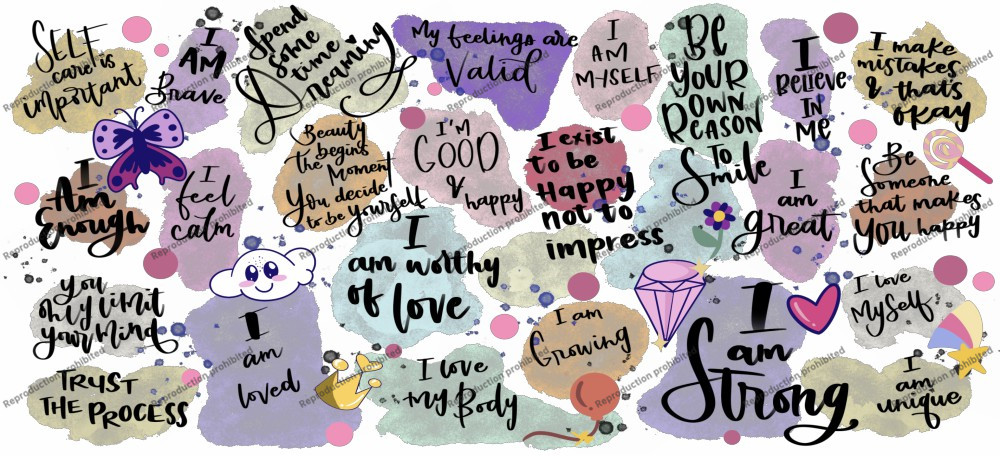 SELF
care is
important
I
AM
Brave
Spend
some
time
Dreaming
My feelings are
Valid
I
AM
MYSELF
BE
YOUR
OWN
REASON
TO
Smile
I
BELIEVE
IN
ME
I make
mistakes
& that's
okay
I
Am
Enough
I
feel
calm
Beauty
begins
The Moment
You decide
to be yourself
I'M
GOOD
&
happy
I exist
to be
Happy
not to
impress
I
am
great
Be
Someone
that makes
YOU happy
I
am worthy
of love
you
only limit
your mind
I
am
loved
I am
Growing
I
am
Strong
I love
MySelf
TRUST
THE PROCESS
I love
my Body
I
am
unique
Reproduction prohibited